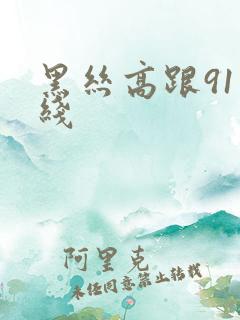 黑丝高跟91
线
阿里克
未经同意禁止转载